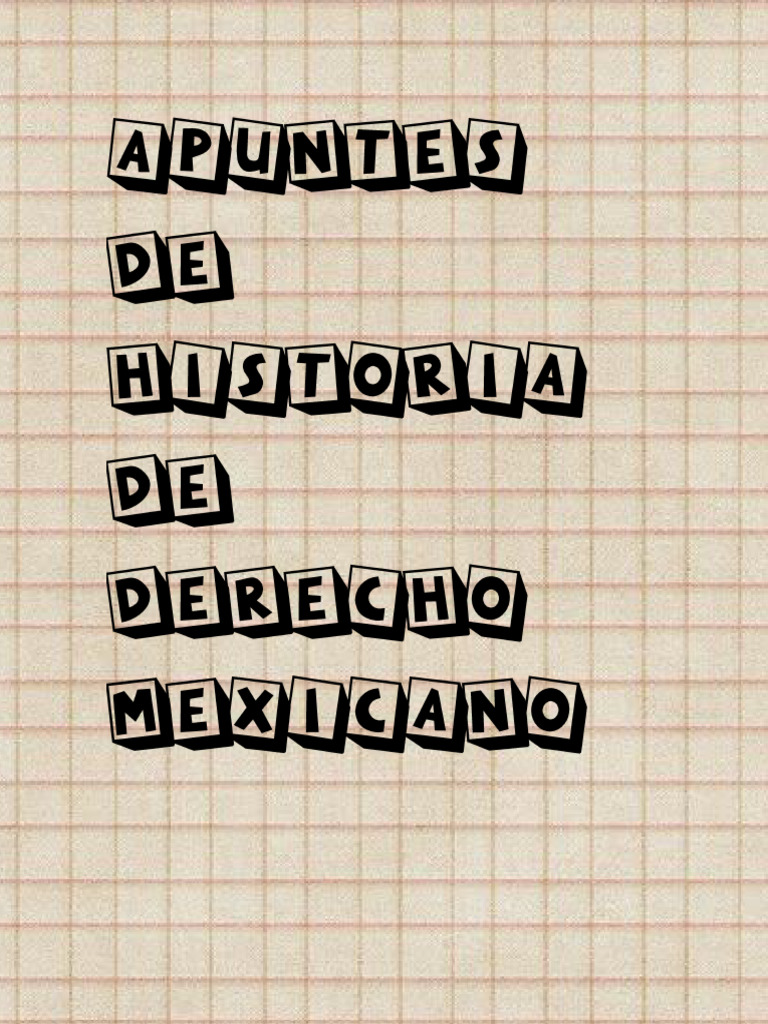 APUNTES
DE
HISTORIA
DE
DERECHO
MEXICANO